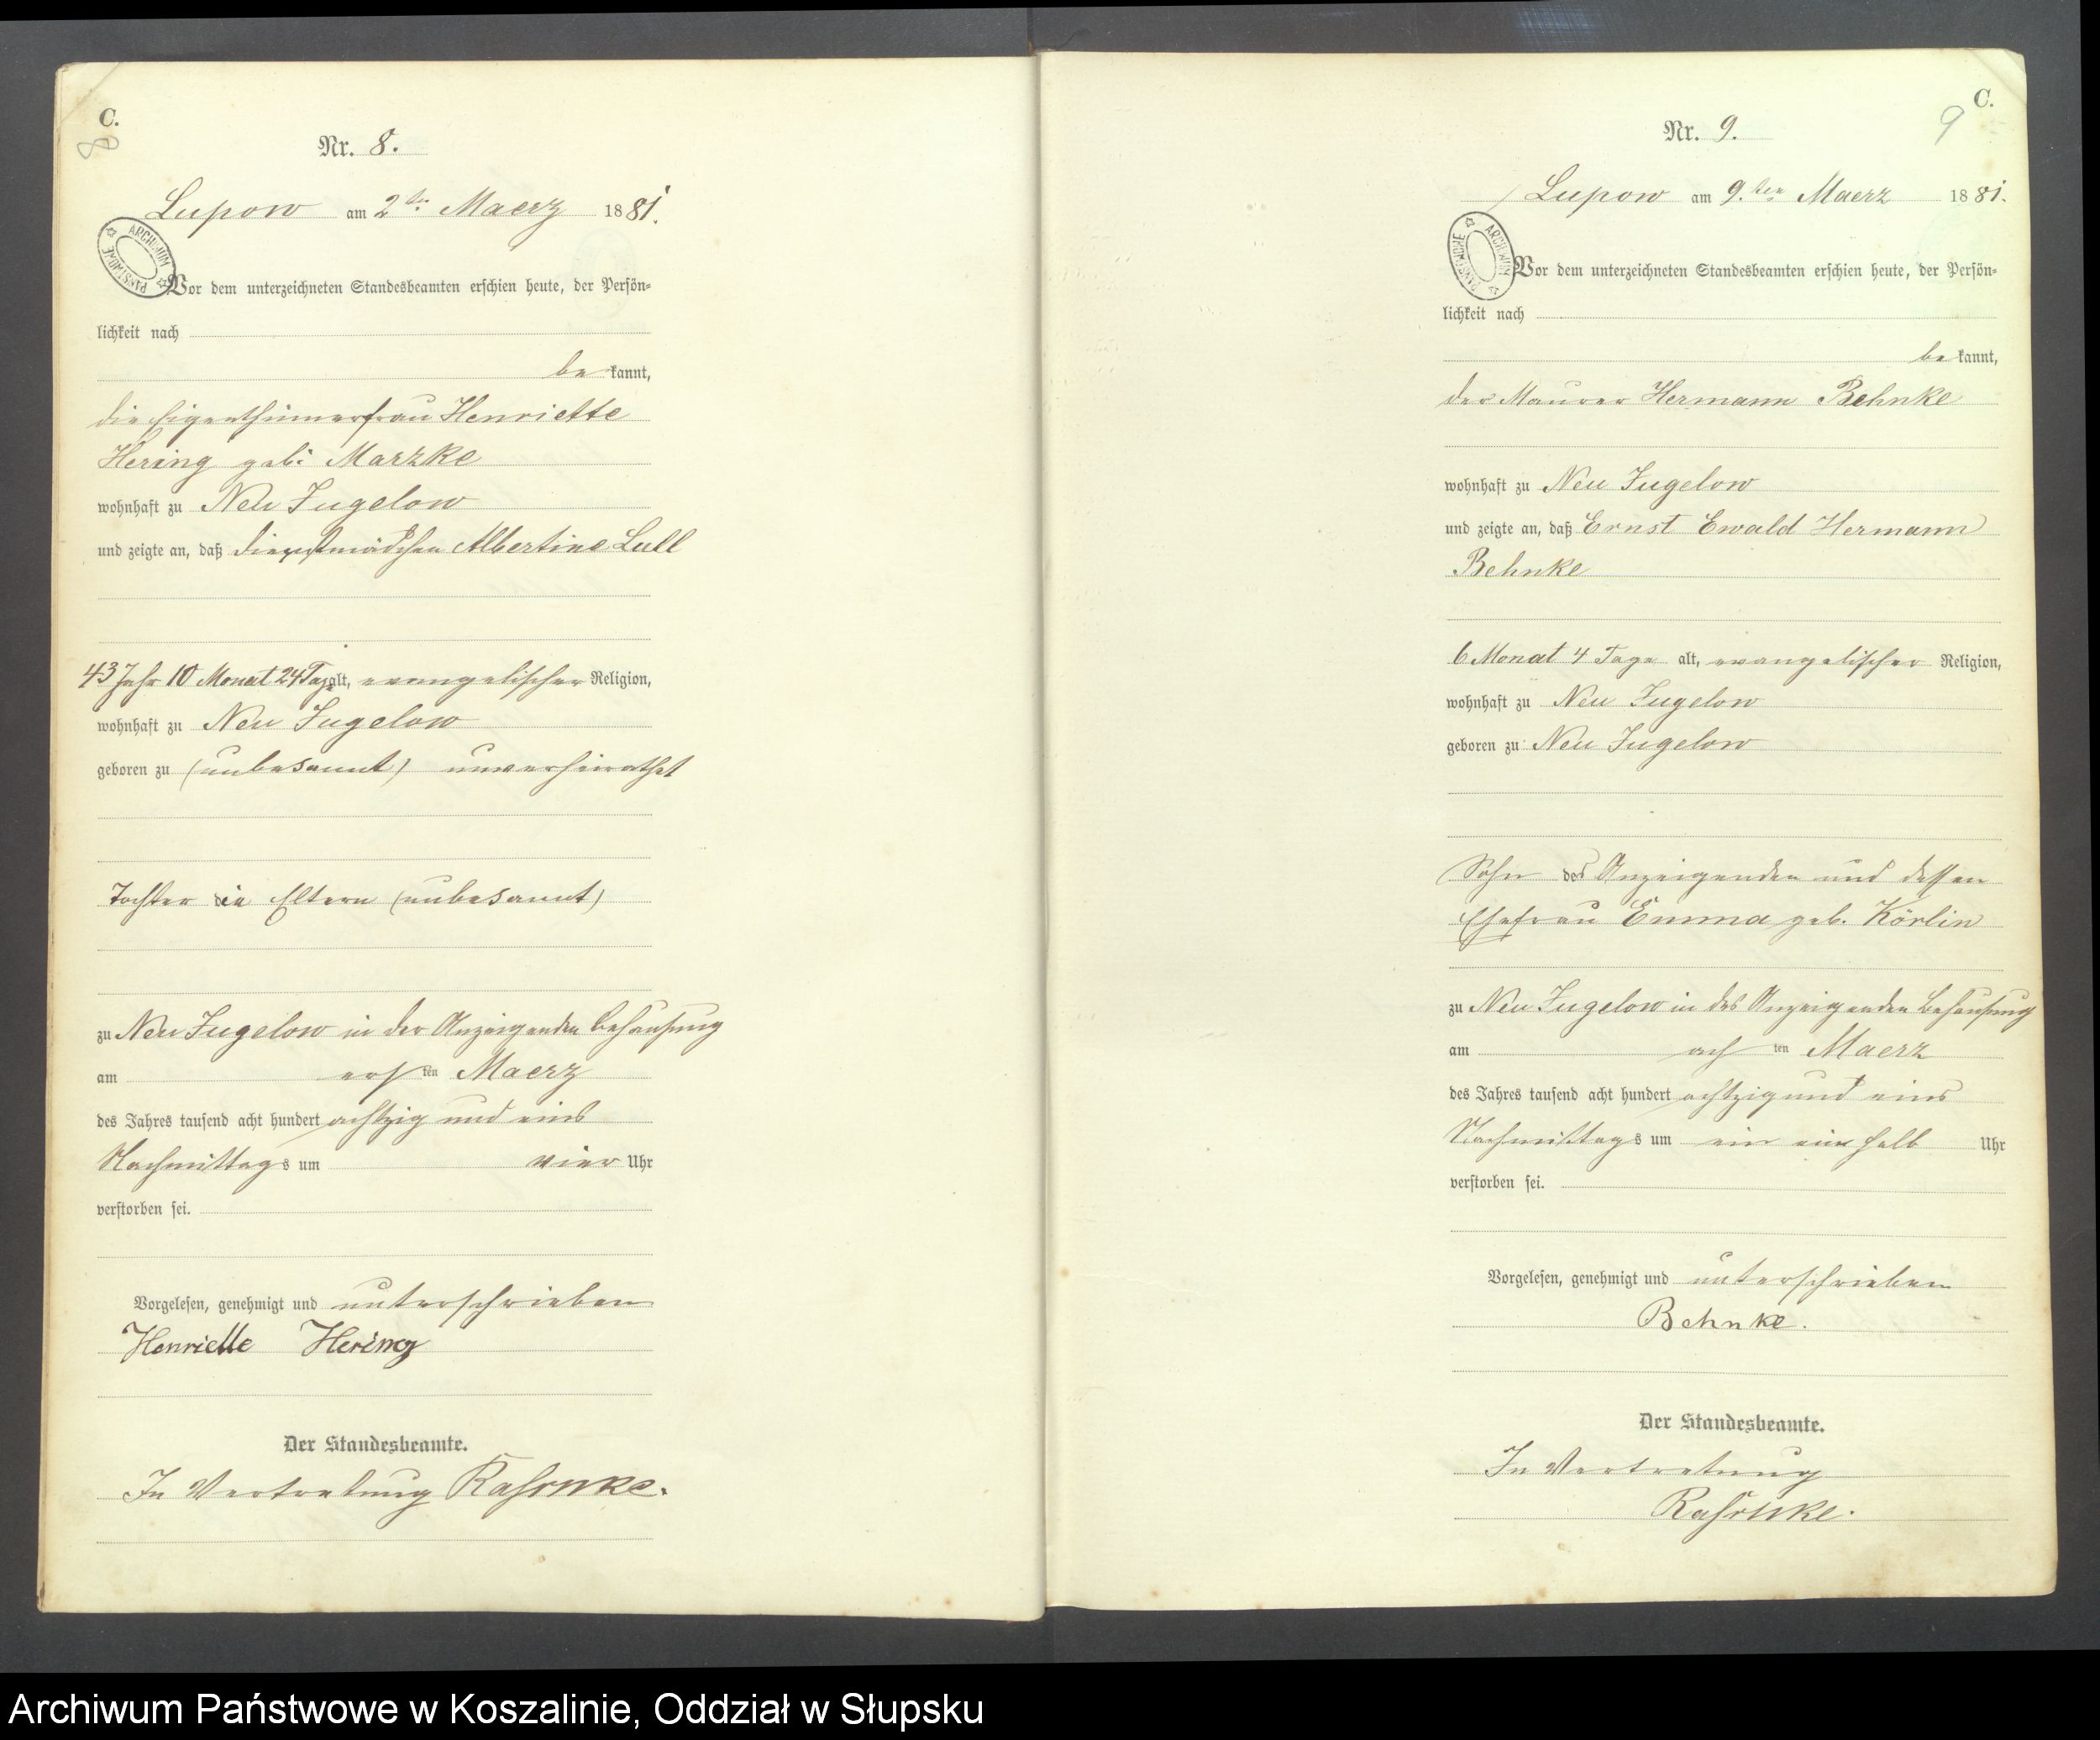 C.
8
Nr. 8.
Lupow am 2ten Maerz 1881.
ARCHIWUM PAŃSTWOWE
Vor dem unterzeichneten Standesbeamten erschien heute, der Persön-
lichkeit nach
be kannt,
die Eigenthümerfrau Henriette
Hering geb: Marzke
wohnhaft zu Neu Jugelow
und zeigte an, daß Dienstmädchen Albertine Lull
43 Jahr 10 Monat 24 Tage alt, evangelischer Religion,
wohnhaft zu Neu Jugelow
geboren zu (unbekannt) unverheirathet
Tochter die Eltern (unbekannt)
zu Neu Jugelow in der Anzeigenden Behausung
am ersten Maerz
des Jahres tausend acht hundert achtzig und eins
Nachmittags um vier Uhr
verstorben sei.
Vorgelesen, genehmigt und unterschrieben
Henriette Hering
Der Standesbeamte.
In Vertretung
C.
9
Nr. 9.
Lupow am 9.ten Maerz 1881.
ARCHIWUM PAŃSTWOWE
Vor dem unterzeichneten Standesbeamten erschien heute, der Persön-
lichkeit nach
be kannt,
der Maurer Hermann Behnke
wohnhaft zu Neu Jugelow
und zeigte an, daß Ernst Ewald Hermann
Behnke
6 Monat 4 Tage alt, evangelischer Religion,
wohnhaft zu Neu Jugelow
geboren zu Neu Jugelow
Sohn des Anzeigenden und dessen
Ehefrau Emma geb. Körlin
zu Neu Jugelow in des Anzeigenden Behausung
am achten Maerz
des Jahres tausend acht hundert achtzig und eins
Nachmittags um ein ein halb Uhr
verstorben sei.
Vorgelesen, genehmigt und unterschrieben
Behnke.
Der Standesbeamte.
In Vertretung
Archiwum Państwowe w Koszalinie, Oddział w Słupsku